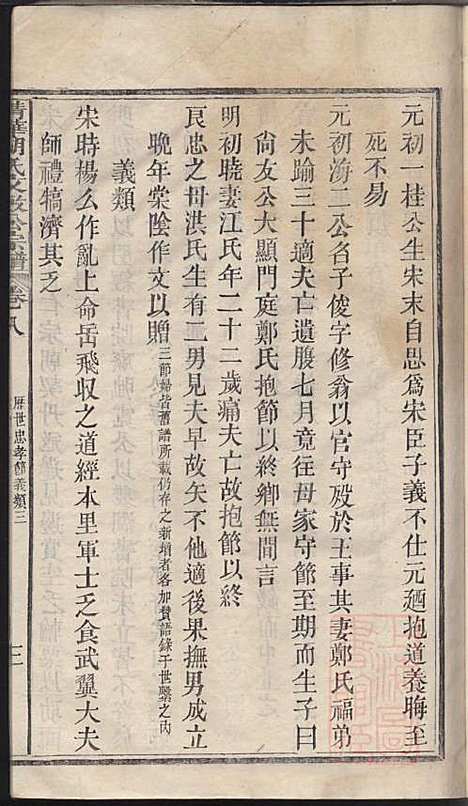 元初一桂公生宋末自思爲宋臣子義不仕元廼抱道養晦至
死不易
元初海二公名子俊字修翁以官守殁於王事其妻鄭氏福弟
未踰三十適夫亡遺腹七月竟往母家守節至期而生子曰
尙友公大顯門庭鄭氏抱節以終鄉無間言
明初曉妻江氏年二十二歲痛夫亡故抱節以終
良忠之母洪氏生有二男見夫早故矢不他適後果撫男成立
晚年棠陰作文以贈三節婦皆舊譜所載仍存之新增者各加贊語錄于世繫之內
義類
宋時楊么作亂上命岳飛収之道經本里軍士乏食武翼大夫
師禮犒濟其乏
清華胡氏文敏公宗譜 卷八 歷世忠孝節義類三 三